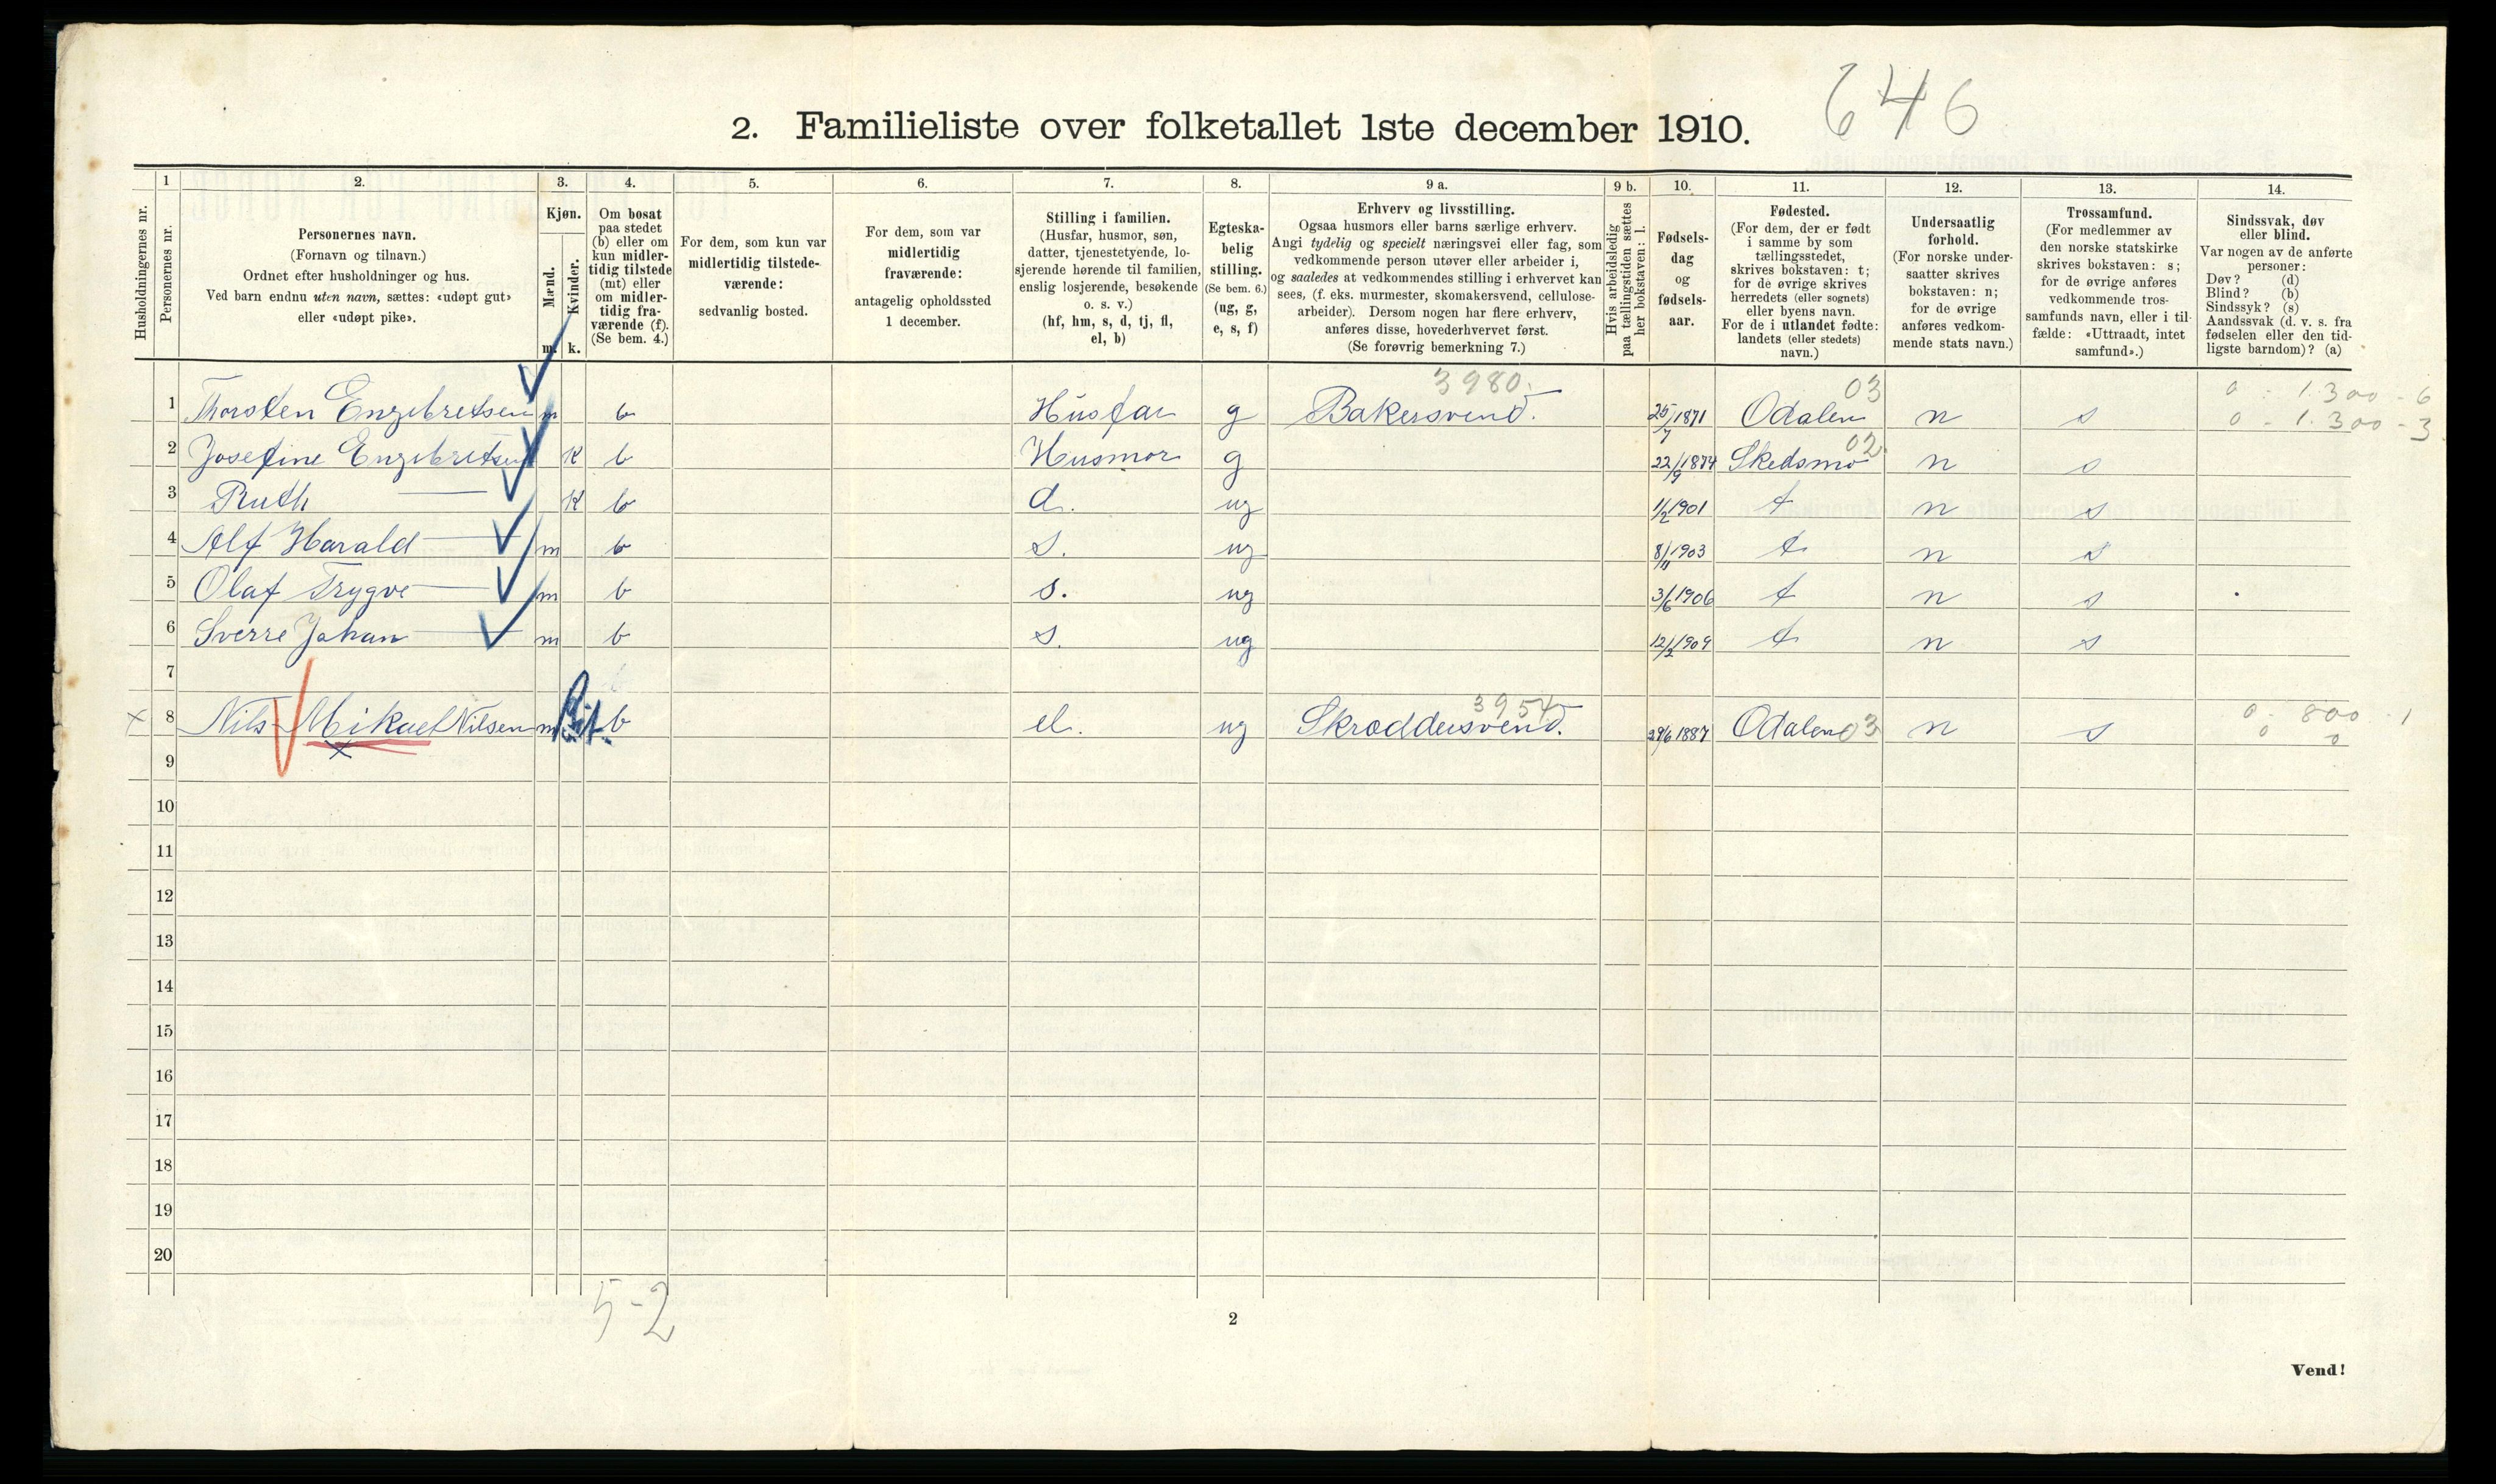 646
2. Familieliste over folketallet 1ste december 1910.
Husholdningernes nr.
1
Personernes nr.
2.
Personernes navn.
(Fornavn og tilnavn.)
Ordnet efter husholdninger og hus.
Ved barn endnu uten navn, sættes: «udøpt gut»
eller «udøpt pike».
3.
Kjøn.
Mænd.
Kvinder.
m. k.
4.
Om bosat
paa stedet
(b) eller om
kun midler-
tidig tilstede
(mt) eller
om midler-
tidig fra-
værende (f).
(Se bem. 4.)
5.
For dem, som kun var
midlertidig tilstede-
værende:
sedvanlig bosted.
6.
For dem, som var
midlertidig
fraværende:
antagelig opholdssted
1 december.
7.
Stilling i familien.
(Husfar, husmor, søn,
datter, tjenestetyende, lo-
sjerende hørende til familien,
enslig losjerende, besøkende
o. s. v.)
(hf, hm, s, d, tj, fl,
el, b)
8.
Egteska-
belig
stilling.
(Se bem. 6.)
(ug, g,
e, s, f)
9 a.
Erhverv og livsstilling.
Ogsaa husmors eller barns særlige erhverv.
Angi tydelig og specielt næringsvei eller fag, som
vedkommende person utøver eller arbeider i,
og saaledes at vedkommendes stilling i erhvervet kan
sees, (f. eks. murmester, skomakersvend, cellulose-
arbeider). Dersom nogen har flere erhverv,
anføres disse, hovederhvervet først.
(Se forøvrig bemerkning 7.)
9 b.
Hvis arbeidsledig
paa tællingstiden sættes
her bokstaven: l.
10.
Fødsels-
dag
og
fødsels-
aar.
11.
Fødested.
(For dem, der er født
i samme by som
tællingsstedet,
skrives bokstaven: t;
for de øvrige skrives
herredets (eller sognets)
eller byens navn.
For de i utlandet fødte:
landets (eller stedets)
navn.)
12.
Undersaatlig
forhold.
(For norske under-
saatter skrives
bokstaven: n;
for de øvrige
anføres vedkom-
mende stats navn.)
13.
Trossamfund.
(For medlemmer av
den norske statskirke
skrives bokstaven: s;
for de øvrige anføres
vedkommende tros-
samfunds navn, eller i til-
fælde: «Uttraadt, intet
samfund».)
14.
Sindssvak, døv
eller blind.
Var nogen av de anførte
personer:
Døv? (d)
Blind? (b)
Sindssyk? (s)
Aandssvak (d. v. s. fra
fødselen eller den tid-
ligste barndom)? (a)
3980. 03 0 - 1.300 - 6
1 Thorsten Engebretsen m b Husfar g Bakersvend. 25/7 1871 Odalen n s 0 - 1.300 - 3
02
2 Josefine Engebretsen K b Husmor g 22/9 1874 Skedsmo n s
3 Ruth — K b d. ug 1/2 1901 t n s
4 Alf Harald — m b s. ug 8/11 1903 t n s
5 Olaf Trygve — m b s. ug 3/6 1906 t n s
6 Sverre Johan — m b s. ug 12/2 1909 t n s
7
3954 0 - 800 - 1
x 8 Nils Mikael Nilsen m b el. ug Skræddersvend. 29/6 1887 Odalen 03 n s 0 0
x
9
10
11
12
13
14
15
16
17
18
19
20
5-2
2
Vend!